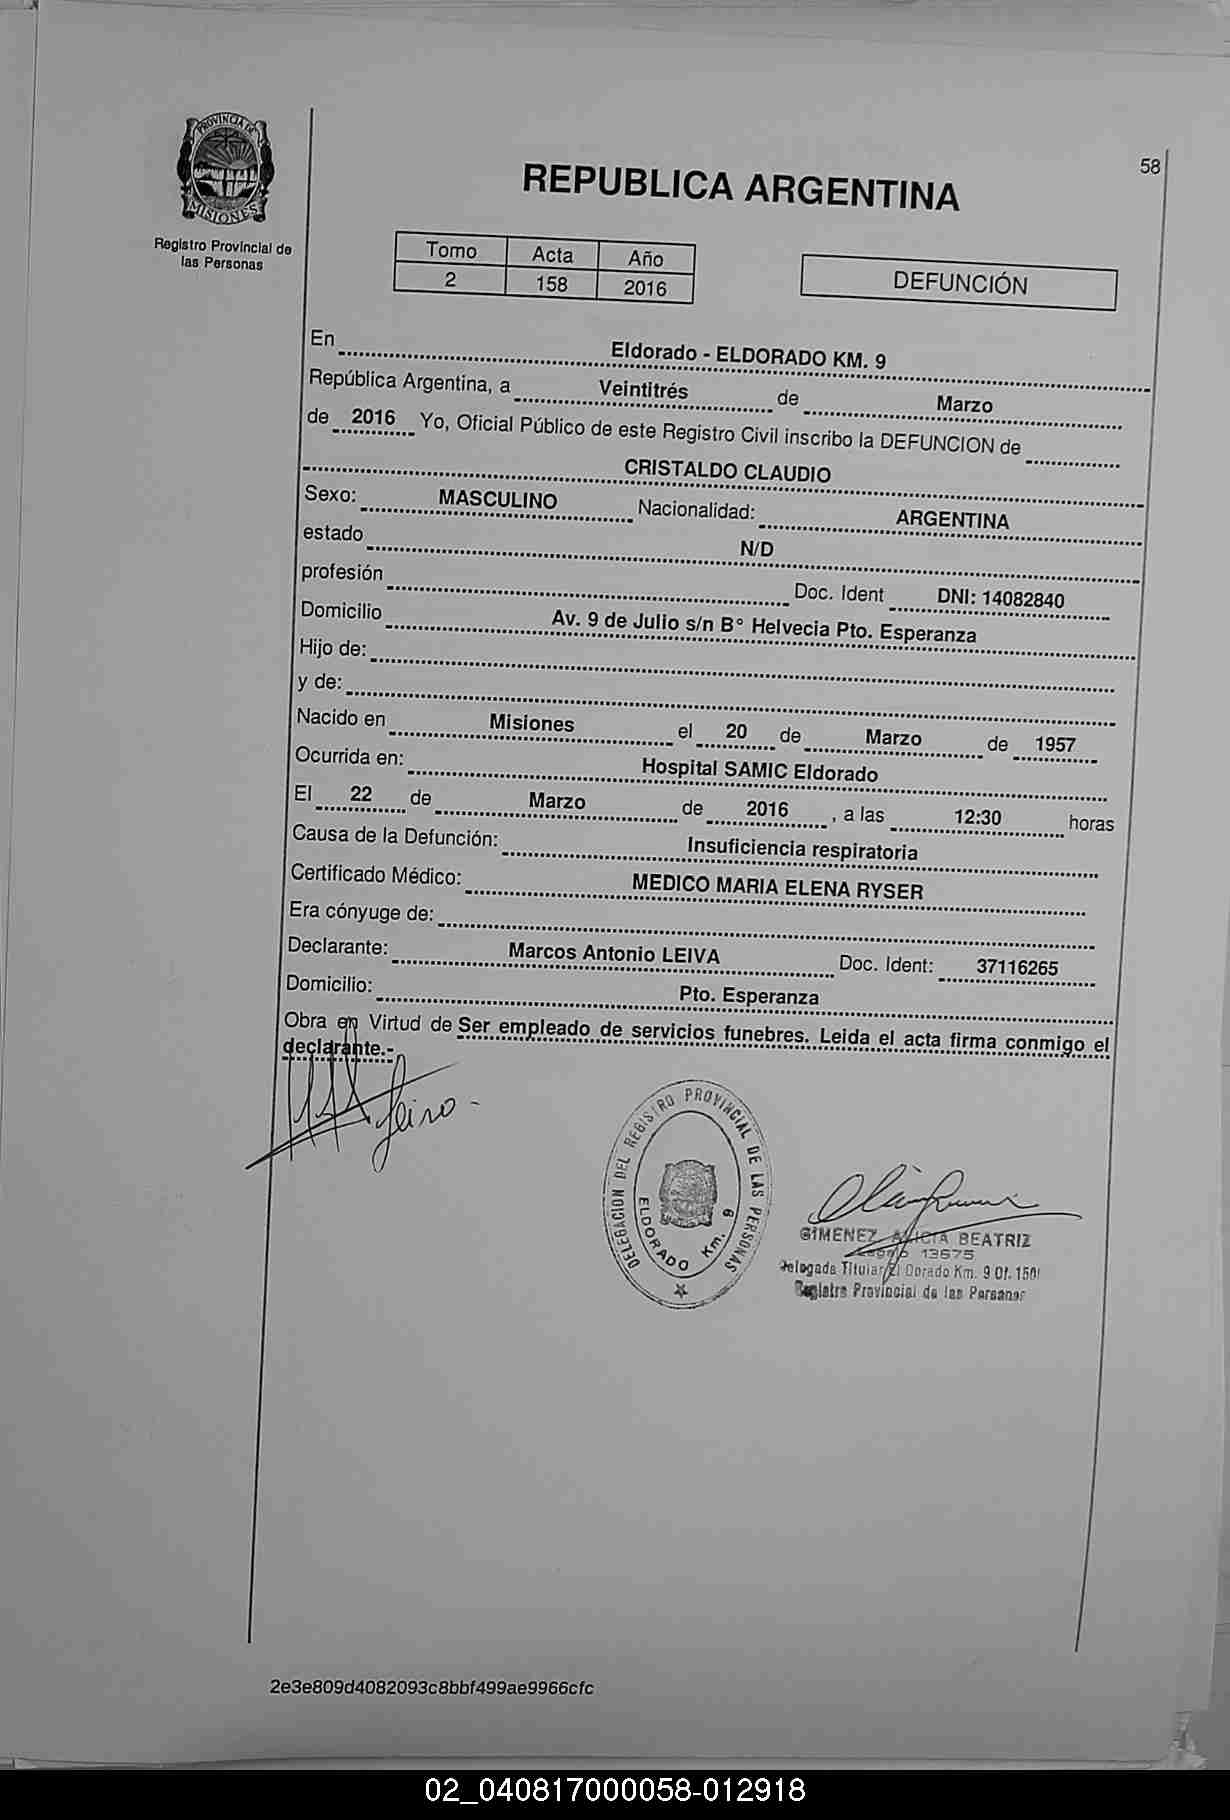 PROVINCIA DE
MISIONES
Registro Provincial de
las Personas
58
REPUBLICA ARGENTINA
Tomo Acta Año
2 158 2016
DEFUNCIÓN
En Eldorado - ELDORADO KM. 9
República Argentina, a Veintitrés de Marzo
de 2016 Yo, Oficial Público de este Registro Civil inscribo la DEFUNCION de
CRISTALDO CLAUDIO
Sexo: MASCULINO Nacionalidad: ARGENTINA
estado N/D
profesión Doc. Ident DNI: 14082840
Domicilio Av. 9 de Julio s/n B° Helvecia Pto. Esperanza
Hijo de:
y de:
Nacido en Misiones el 20 de Marzo de 1957
Ocurrida en: Hospital SAMIC Eldorado
El 22 de Marzo de 2016 , a las 12:30 horas
Causa de la Defunción: Insuficiencia respiratoria
Certificado Médico: MEDICO MARIA ELENA RYSER
Era cónyuge de:
Declarante: Marcos Antonio LEIVA Doc. Ident: 37116265
Domicilio: Pto. Esperanza
Obra en Virtud de Ser empleado de servicios funebres. Leida el acta firma conmigo el
declarante.-
DELEGACION DEL REGISTRO PROVINCIAL DE LAS PERSONAS
ELDORADO Km. 9
GIMENEZ ALICIA BEATRIZ
Legajo 13675
Delegada Titular El Dorado Km. 9 Of. 1501
Registro Provincial de las Personas
2e3e809d4082093c8bbf499ae9966cfc
02_040817000058-012918